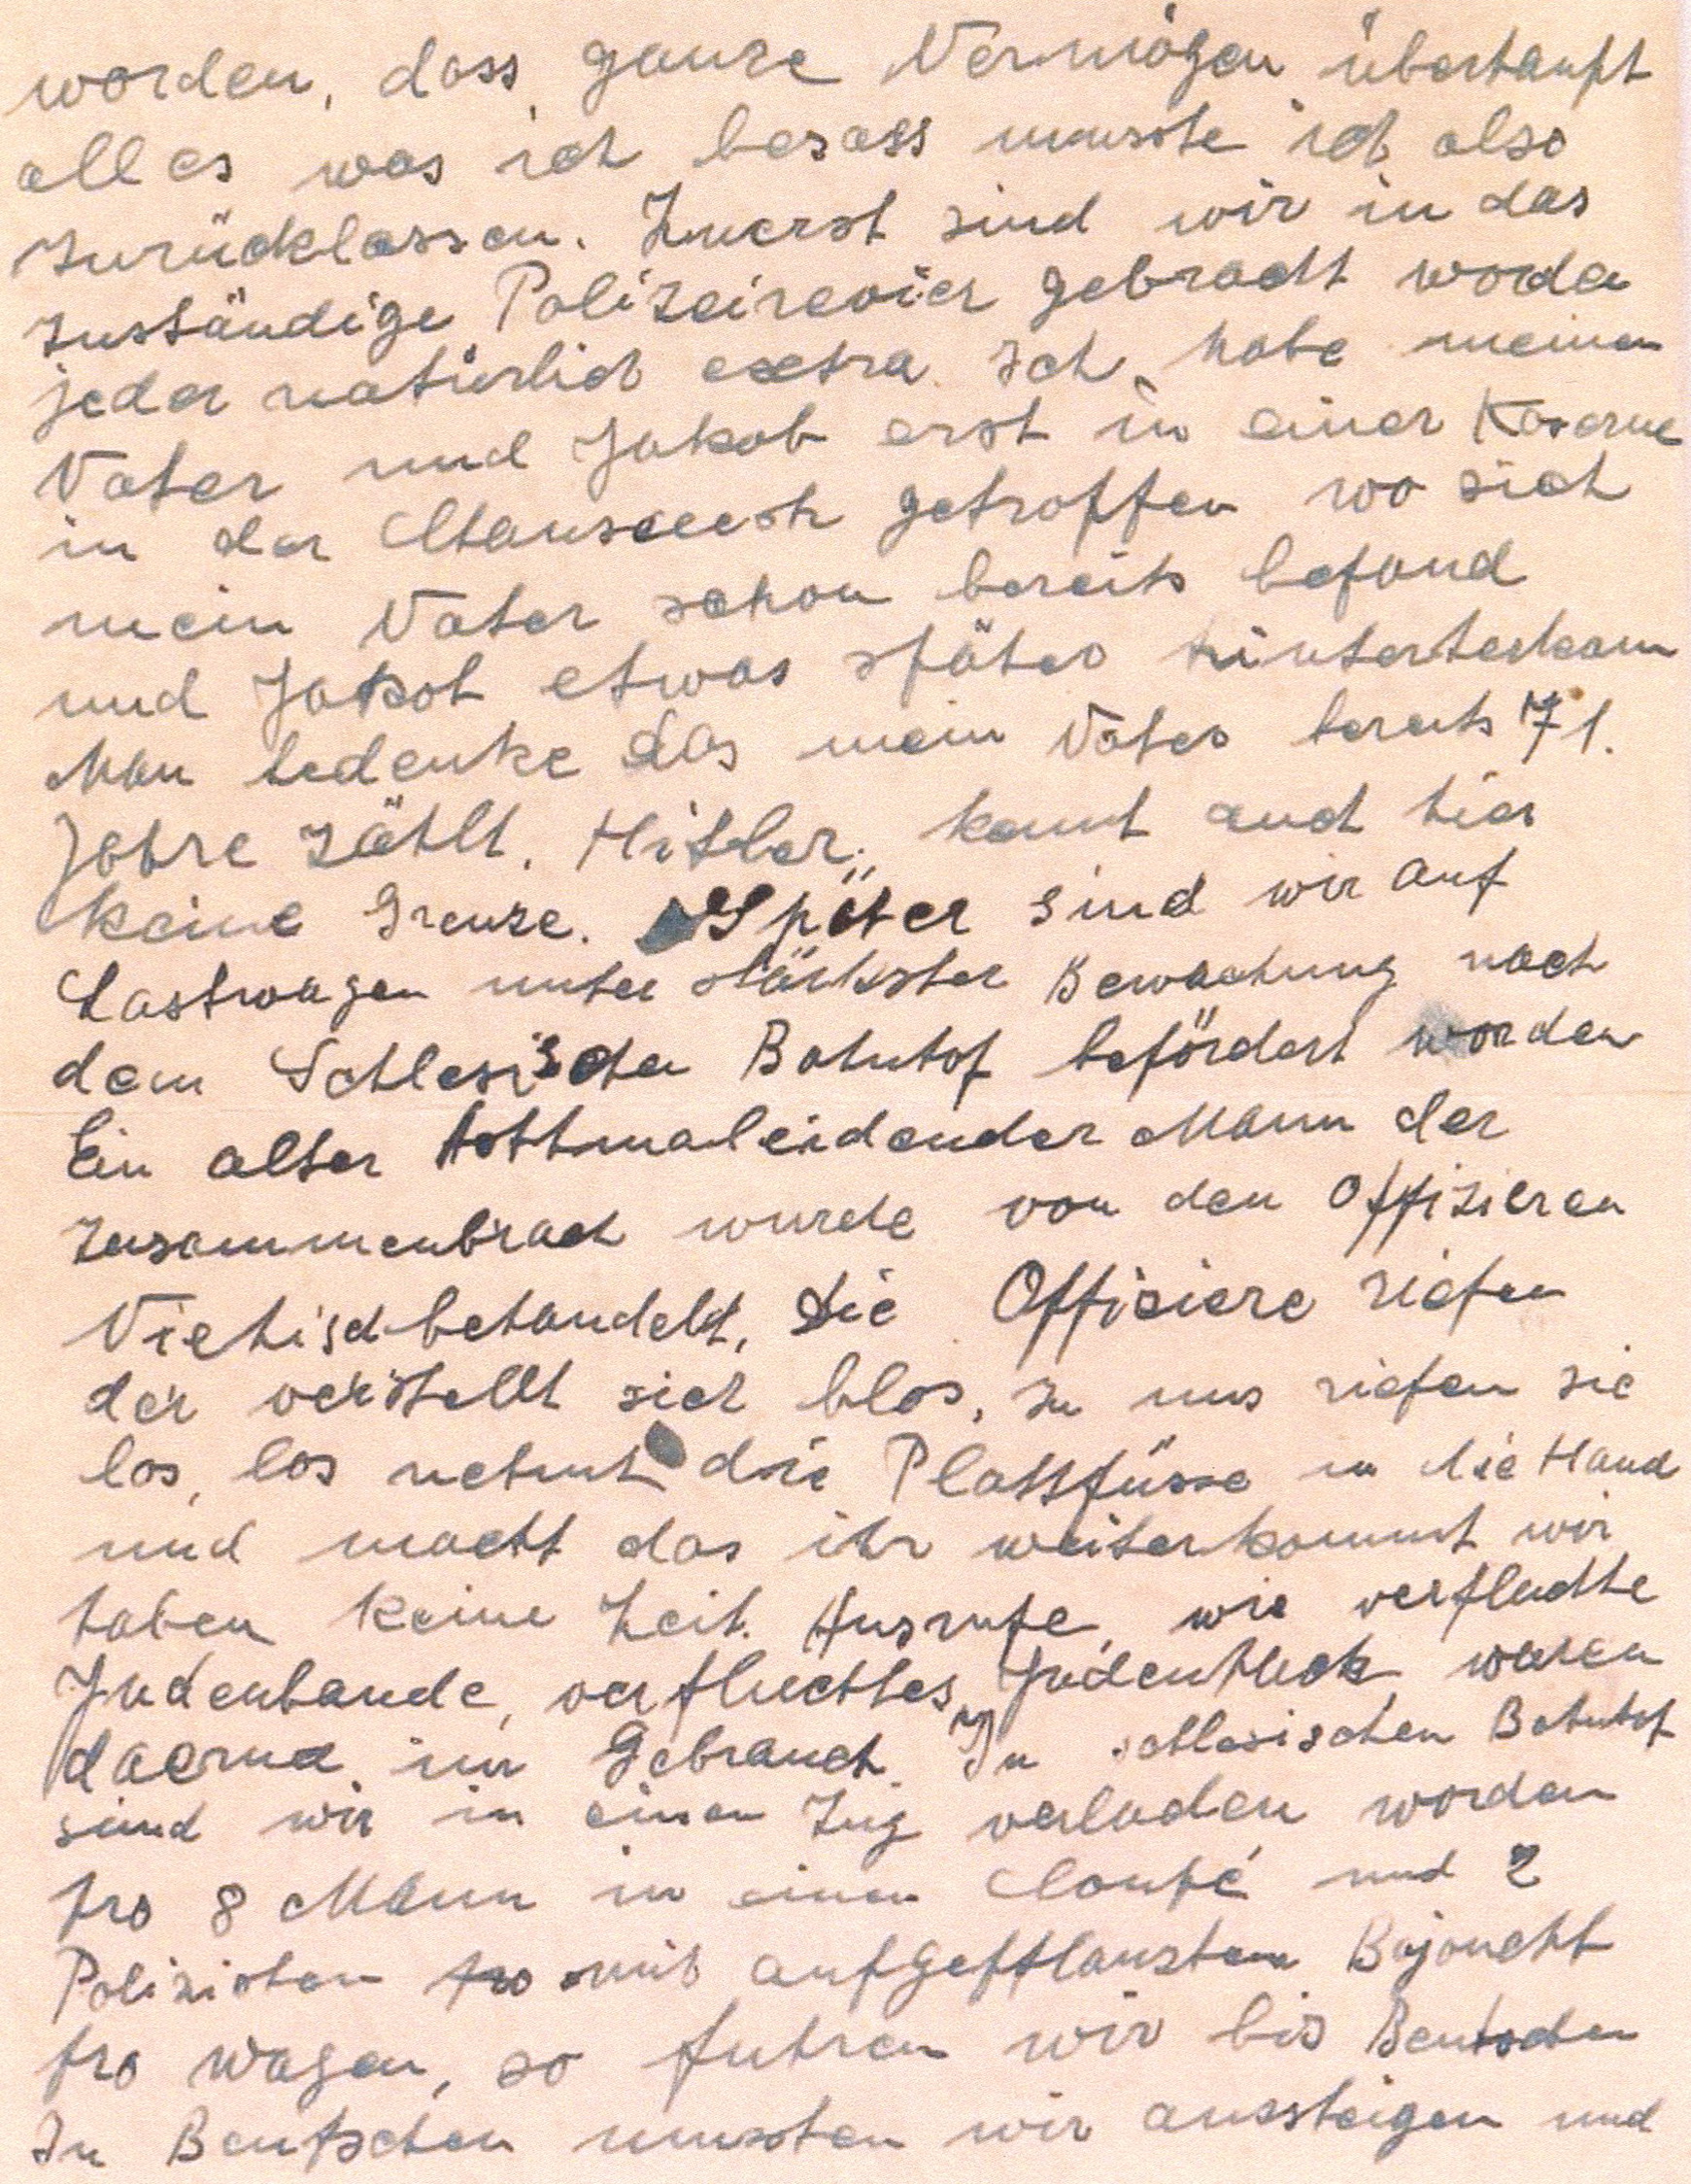 worden, dass ganze Vermögen überhaupt
alles was ich besass musste ich also
zurücklassen. Zuerst sind wir in das
zuständige Polizeirevier gebracht worden
jeder natürlich extra. Ich habe meinen
Vater und Jakob erst in einer Kaserne
in der getroffen wo sich
mein Vater schon bereits befand
und Jakob etwas später hinterherkam
Man bedenke das mein Vater bereits 71.
Jahre zählt. Hitler kennt auch hier
keine Grenze. Später sind wir auf
Lastwagen unter stärkster Bewachung nach
dem Schlesischen Bahnhof befördert worden
Ein alter Asthmaleidender Mann der
zusammenbrach wurde von den Offizieren
Viehisch behandelt, die Offiziere riefen
der verstellt sich blos, zu uns riefen sie
los, los nehmt die Plattfüsse in die Hand
und macht das ihr weiterkommt wir
haben keine Zeit. Ausrufe, wie verfluchte
Judenbande, verfluchtes waren
dauernd im Gebrauch. Im schlesischen Bahnhof
sind wir in einen Zug verladen worden
pro 8 Mann in einen Coupé und 2
Polizisten mit aufgepflanzten Bajonett
pro Wagen, so fuhren wir bis Bentschen
In Bentschen mussten wir aussteigen und